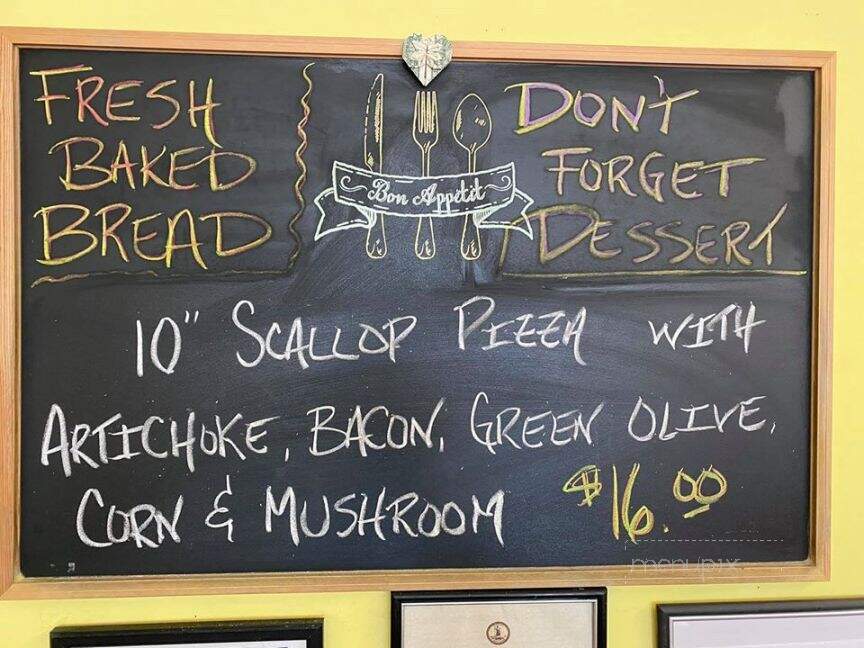 FRESH
BAKED
BREAD
Bon Appétit
DON'T
FORGET
DESSERT
10" SCALLOP PIZZA WITH
ARTICHOKE, BACON, GREEN OLIVE,
CORN & MUSHROOM $16.00
menupix